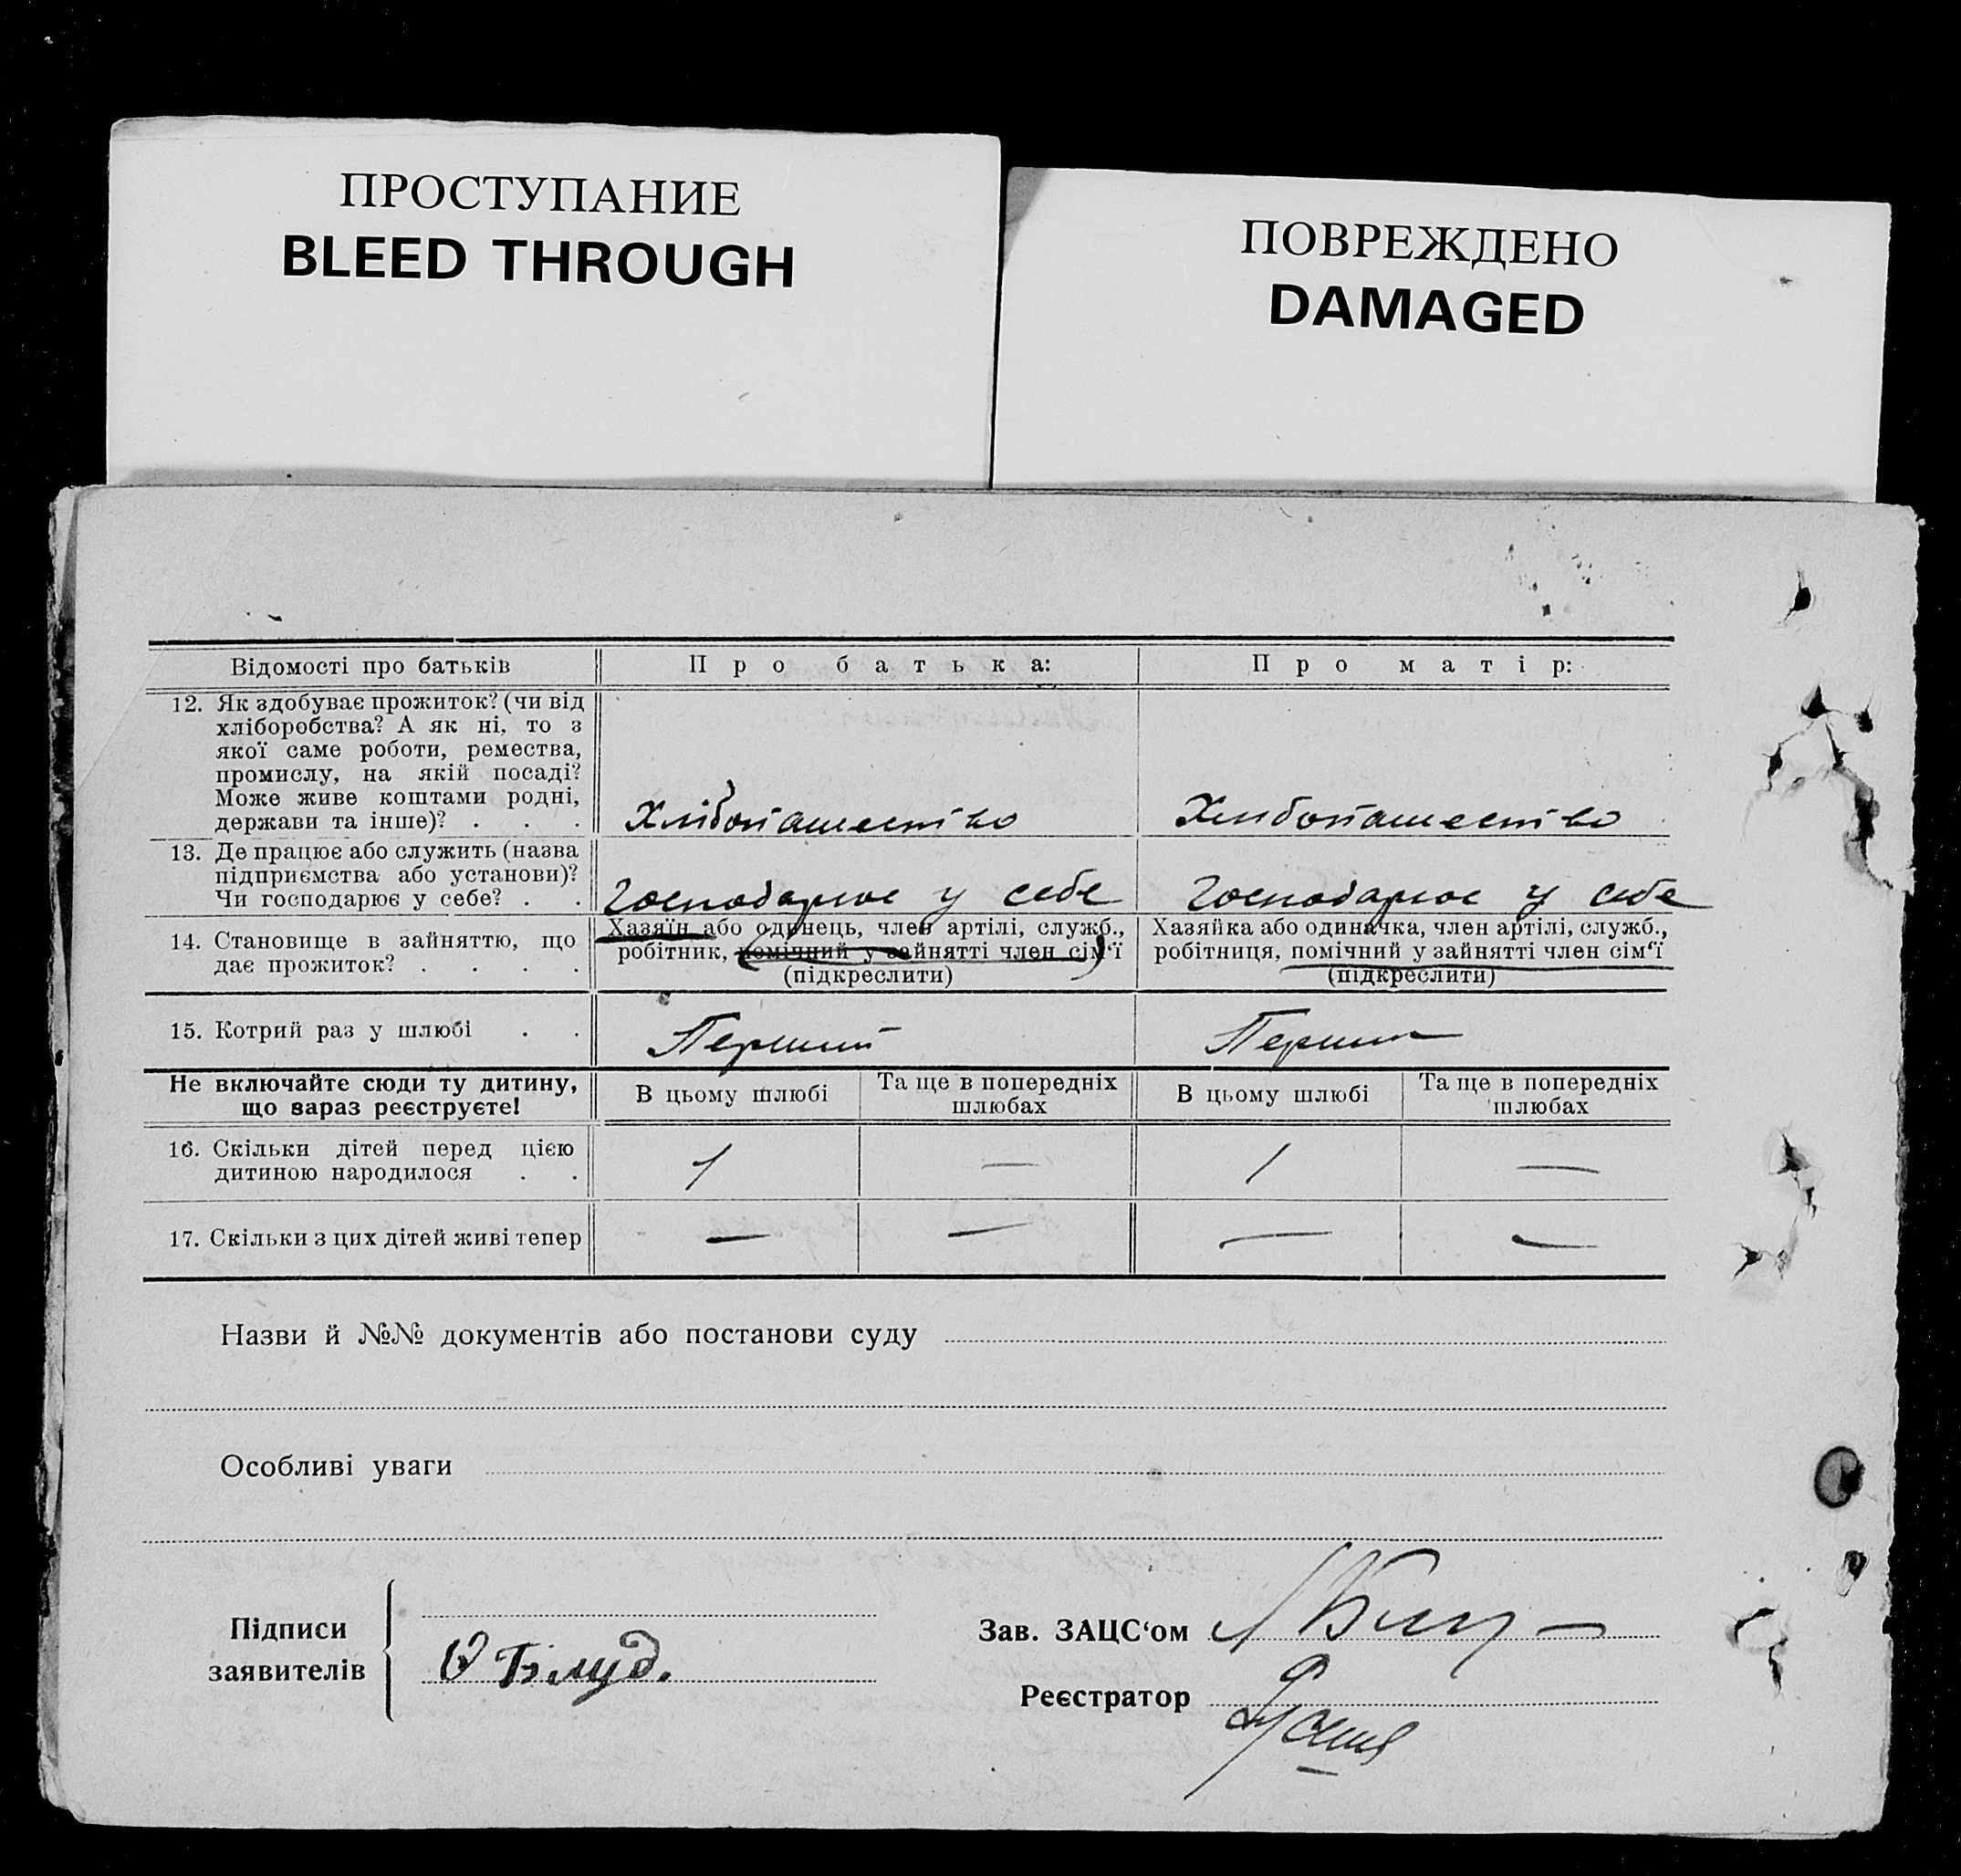 ПРОСТУПАНИЕ
BLEED THROUGH
ПОВРЕЖДЕНО
DAMAGED
Відомості про батьків Про батька: Про матір:
12. Як здобуває прожиток? (чи від
хліборобства? А як ні, то з
якої саме роботи, ремества,
промислу, на якій посаді?
Може живе коштами родні,
держави та інше)? . . . Хлібопашество Хлибопашество
13. Де працює або служить (назва
підприємства або установи)?
Чи господарює у себе? . . Господарює у себе Господарює у себе
14. Становище в зайняттю, що
дає прожиток? . . . .
Хазяїн або одинець, член артілі, служб.,
робітник, помічний у зайнятті член сім‘ї
(підкреслити)
Хазяйка або одиначка, член артілі, служб.,
робітниця, помічний у зайнятті член сім‘ї
(підкреслити)
15. Котрий раз у шлюбі . . Перший
Не включайте сюди ту дитину,
що зараз реєструєте!
В цьому шлюбі
Та ще в попередніх
шлюбах
В цьому шлюбі
Та ще в попередніх
шлюбах
16. Скільки дітей перед цією
дитиною народилося . . 1 — 1 —
17. Скільки з цих дітей живі тепер — — — —
Назви й №№ документів або постанови суду
Особливі уваги
Підписи
заявителів
Зав. ЗАЦС‘ом
Реєстратор